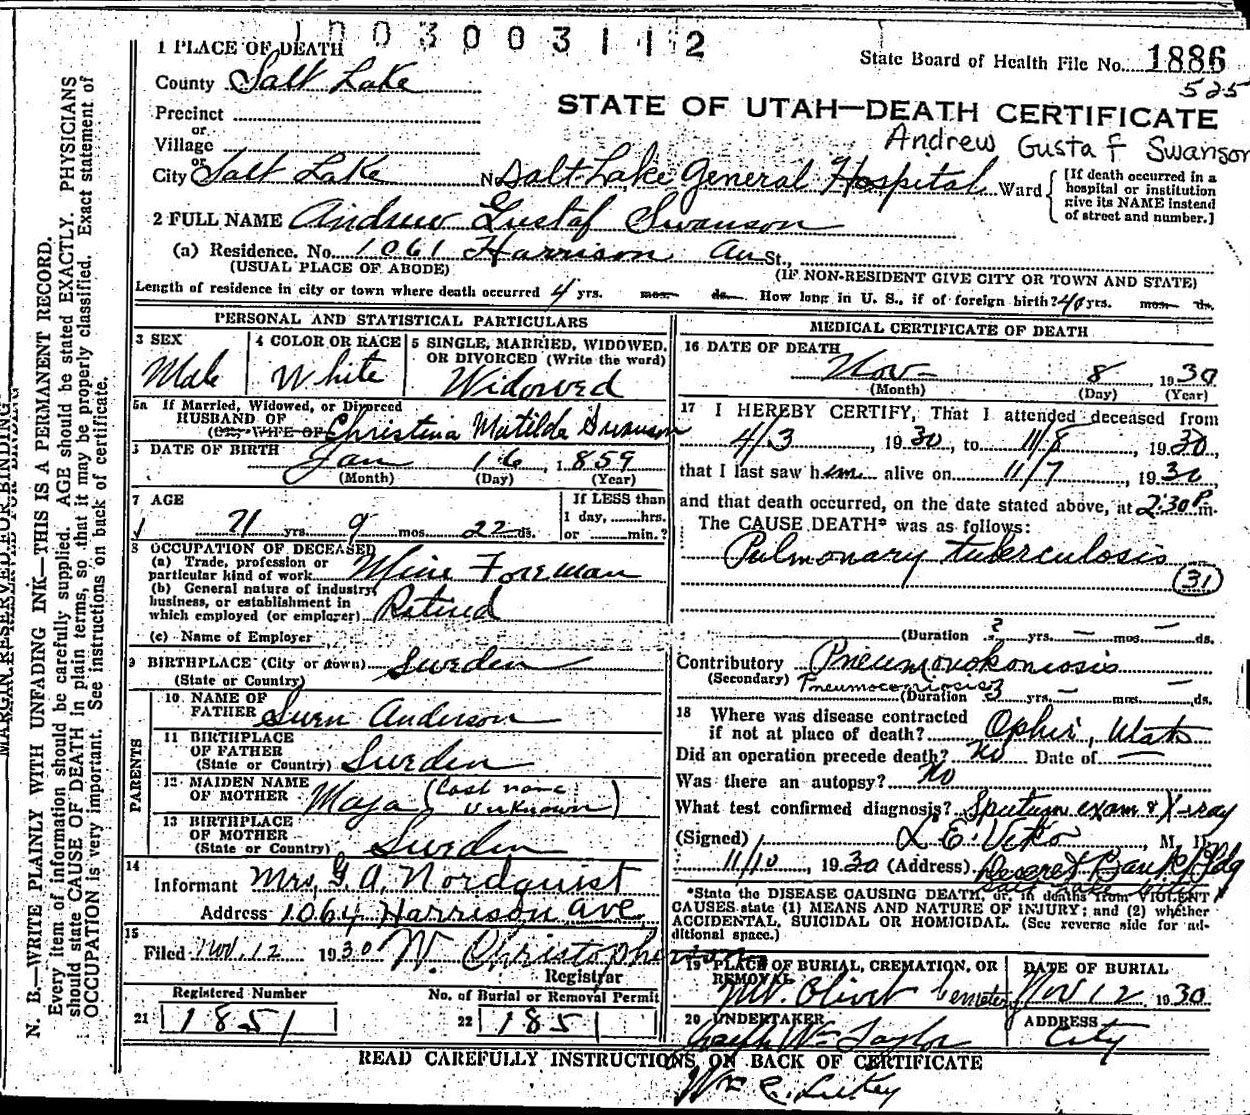 1003003112
1 PLACE OF DEATH
State Board of Health File No. 1886
525
County Salt Lake
STATE OF UTAH—DEATH CERTIFICATE
Precinct
Andrew Gustaf Swanson
or
Village
or
City Salt Lake No. Salt Lake General Hospital Ward
[If death occurred in a hospital or institution give its NAME instead of street and number.]
2 FULL NAME Andrew Gustaf Swanson
(a) Residence. No. 1061 Harrison Av St.,
(USUAL PLACE OF ABODE) (IF NON-RESIDENT GIVE CITY OR TOWN AND STATE)
Length of residence in city or town where death occurred 4 yrs. mos. ds. How long in U. S., if of foreign birth? 40 yrs. mos. ds.
PERSONAL AND STATISTICAL PARTICULARS
3 SEX
Male
4 COLOR OR RACE
White
5 SINGLE, MARRIED, WIDOWED, OR DIVORCED (Write the word)
Widowed
5a If Married, Widowed, or Divorced
HUSBAND OF
(OR) WIFE OF Christina Matilda Swanson
DATE OF BIRTH Jan 16, 1859
(Month) (Day) (Year)
7 AGE
71 yrs. 9 mos. 22 ds.
If LESS than
1 day, ......hrs.
or ......min.?
8 OCCUPATION OF DECEASED
(a) Trade, profession or
particular kind of work Mine Foreman
(b) General nature of industry,
business, or establishment in
which employed (or employer) Retired
(c) Name of Employer
9 BIRTHPLACE (City or town) Sweden
(State or Country)
PARENTS
10 NAME OF
FATHER Sven Anderson
11 BIRTHPLACE
OF FATHER
(State or Country) Sweden
12 MAIDEN NAME
OF MOTHER Maja (Last name unknown)
13 BIRTHPLACE
OF MOTHER
(State or Country) Sweden
14
Informant Mrs. G. A. Nordquist
Address 1064 Harrison Ave
15
Filed Nov. 12 1930 W. Christopherson
Registrar
Registered Number
21 1851
No. of Burial or Removal Permit
22 1851
MEDICAL CERTIFICATE OF DEATH
16 DATE OF DEATH
Nov- 8 1930
(Month) (Day) (Year)
17 I HEREBY CERTIFY, That I attended deceased from
4/3, 1930, to 11/8, 1930,
that I last saw him alive on 11/7, 1930
and that death occurred, on the date stated above, at 2:30 P. m.
The CAUSE DEATH* was as follows:
Pulmonary tuberculosis
(31)
(Duration ? yrs. — mos. — ds.
Contributory Pneumonokoniosis
(Secondary) Pneumoconiosis
(Duration 3 yrs. — mos. — ds.
18 Where was disease contracted
if not at place of death? Ophir, Utah
Did an operation precede death? No Date of —
Was there an autopsy? No
What test confirmed diagnosis? Sputum exam & X-ray
(Signed) L. E. Viko, M. D.
11/10, 1930 (Address) Deseret Bank Bldg
Salt Lake City
*State the DISEASE CAUSING DEATH, or, in deaths from VIOLENT
CAUSES state (1) MEANS AND NATURE OF INJURY; and (2) whether
ACCIDENTAL, SUICIDAL OR HOMICIDAL. (See reverse side for additional space.)
19 PLACE OF BURIAL, CREMATION, OR
REMOVAL
Mt. Olivet Cemetery
DATE OF BURIAL
Nov 12 1930
20 UNDERTAKER
Joseph Wm Taylor
ADDRESS
City
READ CAREFULLY INSTRUCTIONS ON BACK OF CERTIFICATE
Wm C.
MARGIN RESERVED FOR BINDING
N. B.—WRITE PLAINLY WITH UNFADING INK—THIS IS A PERMANENT RECORD.
Every item of information should be carefully supplied. AGE should be stated EXACTLY. PHYSICIANS
should state CAUSE OF DEATH in plain terms, so that it may be properly classified. Exact statement of
OCCUPATION is very important. See instructions on back of certificate.